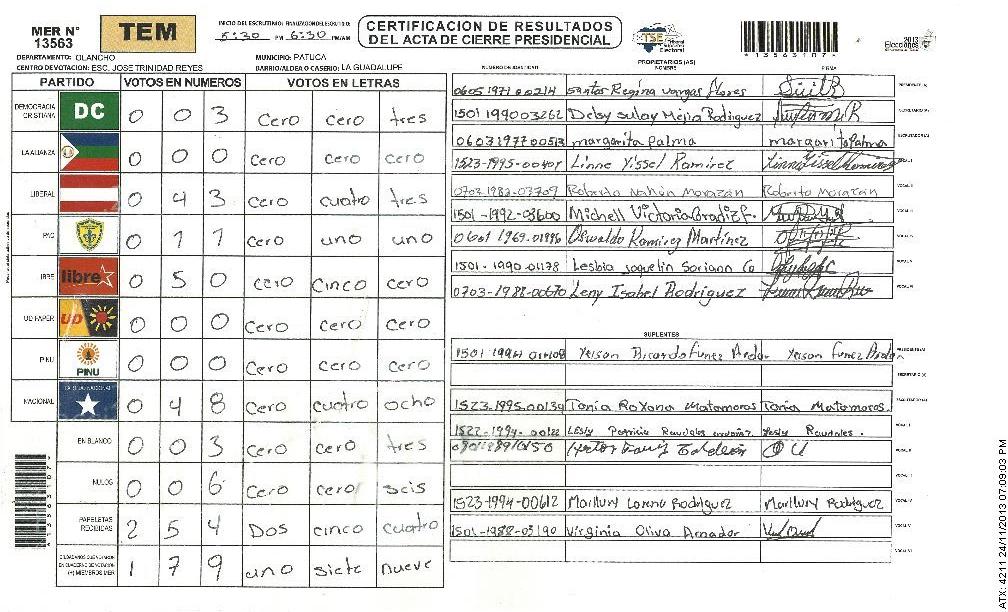 MER N° 13563
TEM
INICIO DEL ESCRUTINIO:
5:30 PM 6:30 PM/AM
CERTIFICACION DE RESULTADOS
DEL ACTA DE CIERRE PRESIDENCIAL
TSE Tribunal Supremo Electoral
2013 Elecciones
*1356310?*
DEPARTAMENTO: OLANCHO
MUNICIPIO: PATUCA
CENTRO DE VOTACION: ESC. JOSE TRINIDAD REYES
BARRIO/ALDEA O CASERIO: LA GUADALUPE
PARTIDO VOTOS EN NUMEROS VOTOS EN LETRAS
DEMOCRACIA CRISTIANA DC 0 0 3 Cero cero tres
LA ALIANZA 0 0 0 Cero Cero cero
LIBERAL 0 4 3 Cero cuatro tres
PAC 0 1 1 Cero uno uno
LIBRE libre 0 5 0 cero cinco cero
UD FAPER UD 0 0 0 Cero Cero Cero
PINU PINU 0 0 0 Cero Cero Cero
NACIONAL 0 4 8 Cero cuatro ocho
EN BLANCO 0 0 3 Cero Cero tres
NULOS 0 0 6 Cero Cero seis
PAPELETAS RECIBIDAS 2 5 4 Dos cinco cuatro
CIUDADANOS QUE VOTARON EN CUADERNO DE VOTACION (+) MIEMBROS MER 1 7 9 uno siete nueve
NUMERO DE IDENTIDAD PROPIETARIOS (AS) NOMBRE FIRMA
0605 1971 00214 Santos Regina Vargas Flores PRESIDENTE(A)
1501 199003262 Deby Sulay Mejia Rodriguez SECRETARIO(A)
0603197700513 margarita Palma margarita Palma ESCRUTADOR(A)
1523-1995-00407 Linne Yissel Ramirez Linne Yissel Ramirez VOCAL I
0703-1982-03709 Roberto Nahun Morazan Roberto Morazan VOCAL II
1501-1992-03600 Michell Victoria VOCAL III
0601 1969-01996 Oswaldo Ramirez Martinez VOCAL IV
1501-1990-01178 Lesbia Joquelin Soriano VOCAL V
0703-1988-00670 Leny Isabel Rodriguez VOCAL VI
SUPLENTES
1501 1994 Yeison Ricardo Funez Yeison Funez PRESIDENTE(A)
SECRETARIO(A)
1523-1995-00139 Tania Roxana Matamoros Tania Matamoros. ESCRUTADOR(A)
1522-1994-00122 Lesly Patricia Raudales Lesly Raudales. VOCAL I
VOCAL II
VOCAL III
1523-1994-00612 Marilury Lorena Rodriguez Marilury Rodriguez VOCAL IV
1501-1988-03190 Virginia Oliva Amador VOCAL V
VOCAL VI
ATX: 4211 24/11/2013 07:09:03 PM